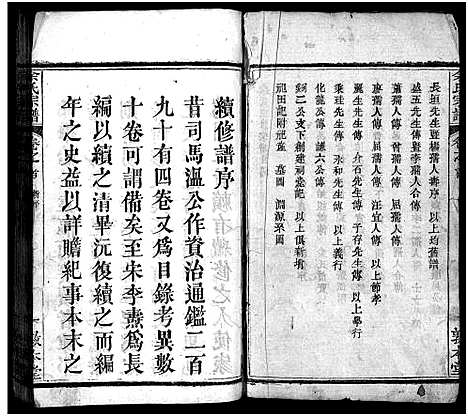 長垣先生暨楊孺人壽序 以上均舊譜
盛五先生傳暨李孺人合傳
蕭孺人傳 曾孺人傳 屈孺人傳
唐孺人傳 汪宜人傳 以上節孝
麗生先生傳 介石先生傳 子存先生傳
秉珪先生傳 永和先生傳 以上義行
化龍公傳 謙六公傳
鄭二公文下創建祠堂記 以上新增
祖田記附祀產 墓圖 淵源來圖
續修譜序
昔司馬溫公作資治通鑑二百
九十有四卷又為目錄考異數
十卷可謂備矣至朱李燾為長
編以續之清畢沅復續之而編
年之史益以詳贍紀事本末之
余氏宗譜
敦本堂